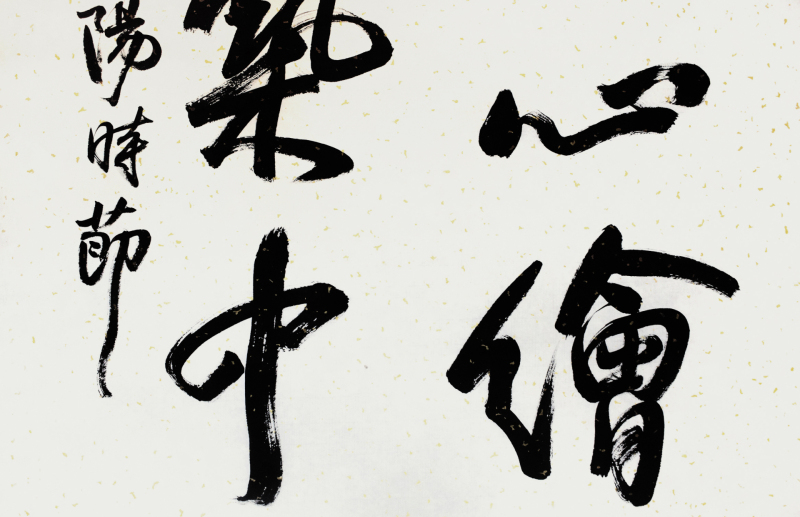 心繪
築中
陽時節